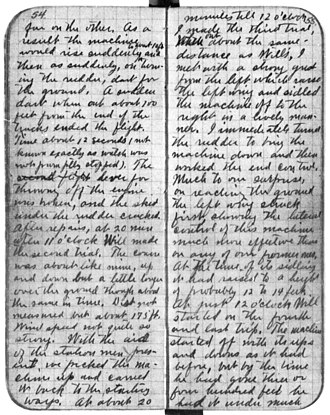 54
far on the other. As a
result the machine
would rise suddenly to about 10 ft.
and
then as suddenly, on turn-
ing the rudder, dart for
the ground. A sudden
dart when out about 100
feet from the end of the
tracks ended the flight.
Time about 12 seconds (not
known exactly as watch was
not promptly stopped). The
lever for
throwing off the engine
was broken, and the skid
under the rudder cracked.
After repairs, at 20 min
after 11 o'clock Will made
the second trial. The course
was about like mine, up
and down but a little longer
over the ground though about
the same in time. Dist. not
measured but about 175 ft.
Wind speed not quite so
strong. With the aid
of the station men pres-
ent, we picked the ma-
chine up and carried
it back to the starting
ways. At about 20
minutes till 12 o'clock
I made the third trial.
When out about the same
distance as Will's, I
met with a strong gust
from the left which raised
the left wing and sidled
the machine off to the
right in a lively man-
ner. I immediately turned
the rudder to bring the
machine down and then
worked the end control.
Much to our surprise
on reaching the ground
the left wing struck
first, showing the lateral
control of this machine
much more effective than
on any of our former ones.
At the time of its sidling
it had raised to a height
of probably 12 to 14 feet.
At just 12 o'clock Will
started on the fourth
and last trip. The machine
started off with its ups
and downs as it had
before, but by the time
he had gone three or
four hundred feet he
had it under much